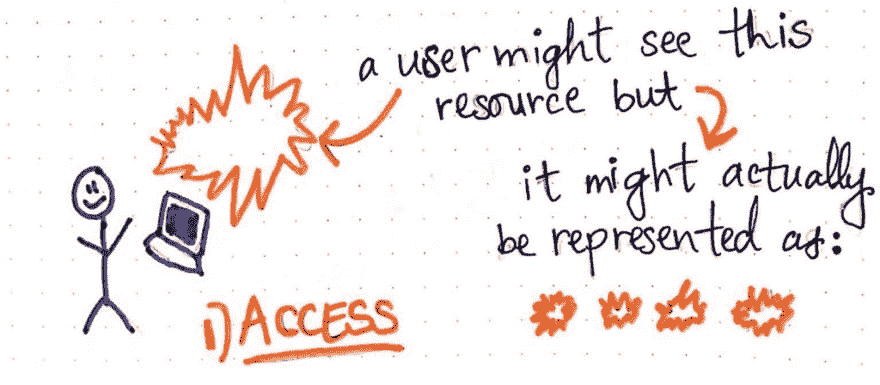 a user might see this
resource but
it might actually
be represented as:
1) ACCESS